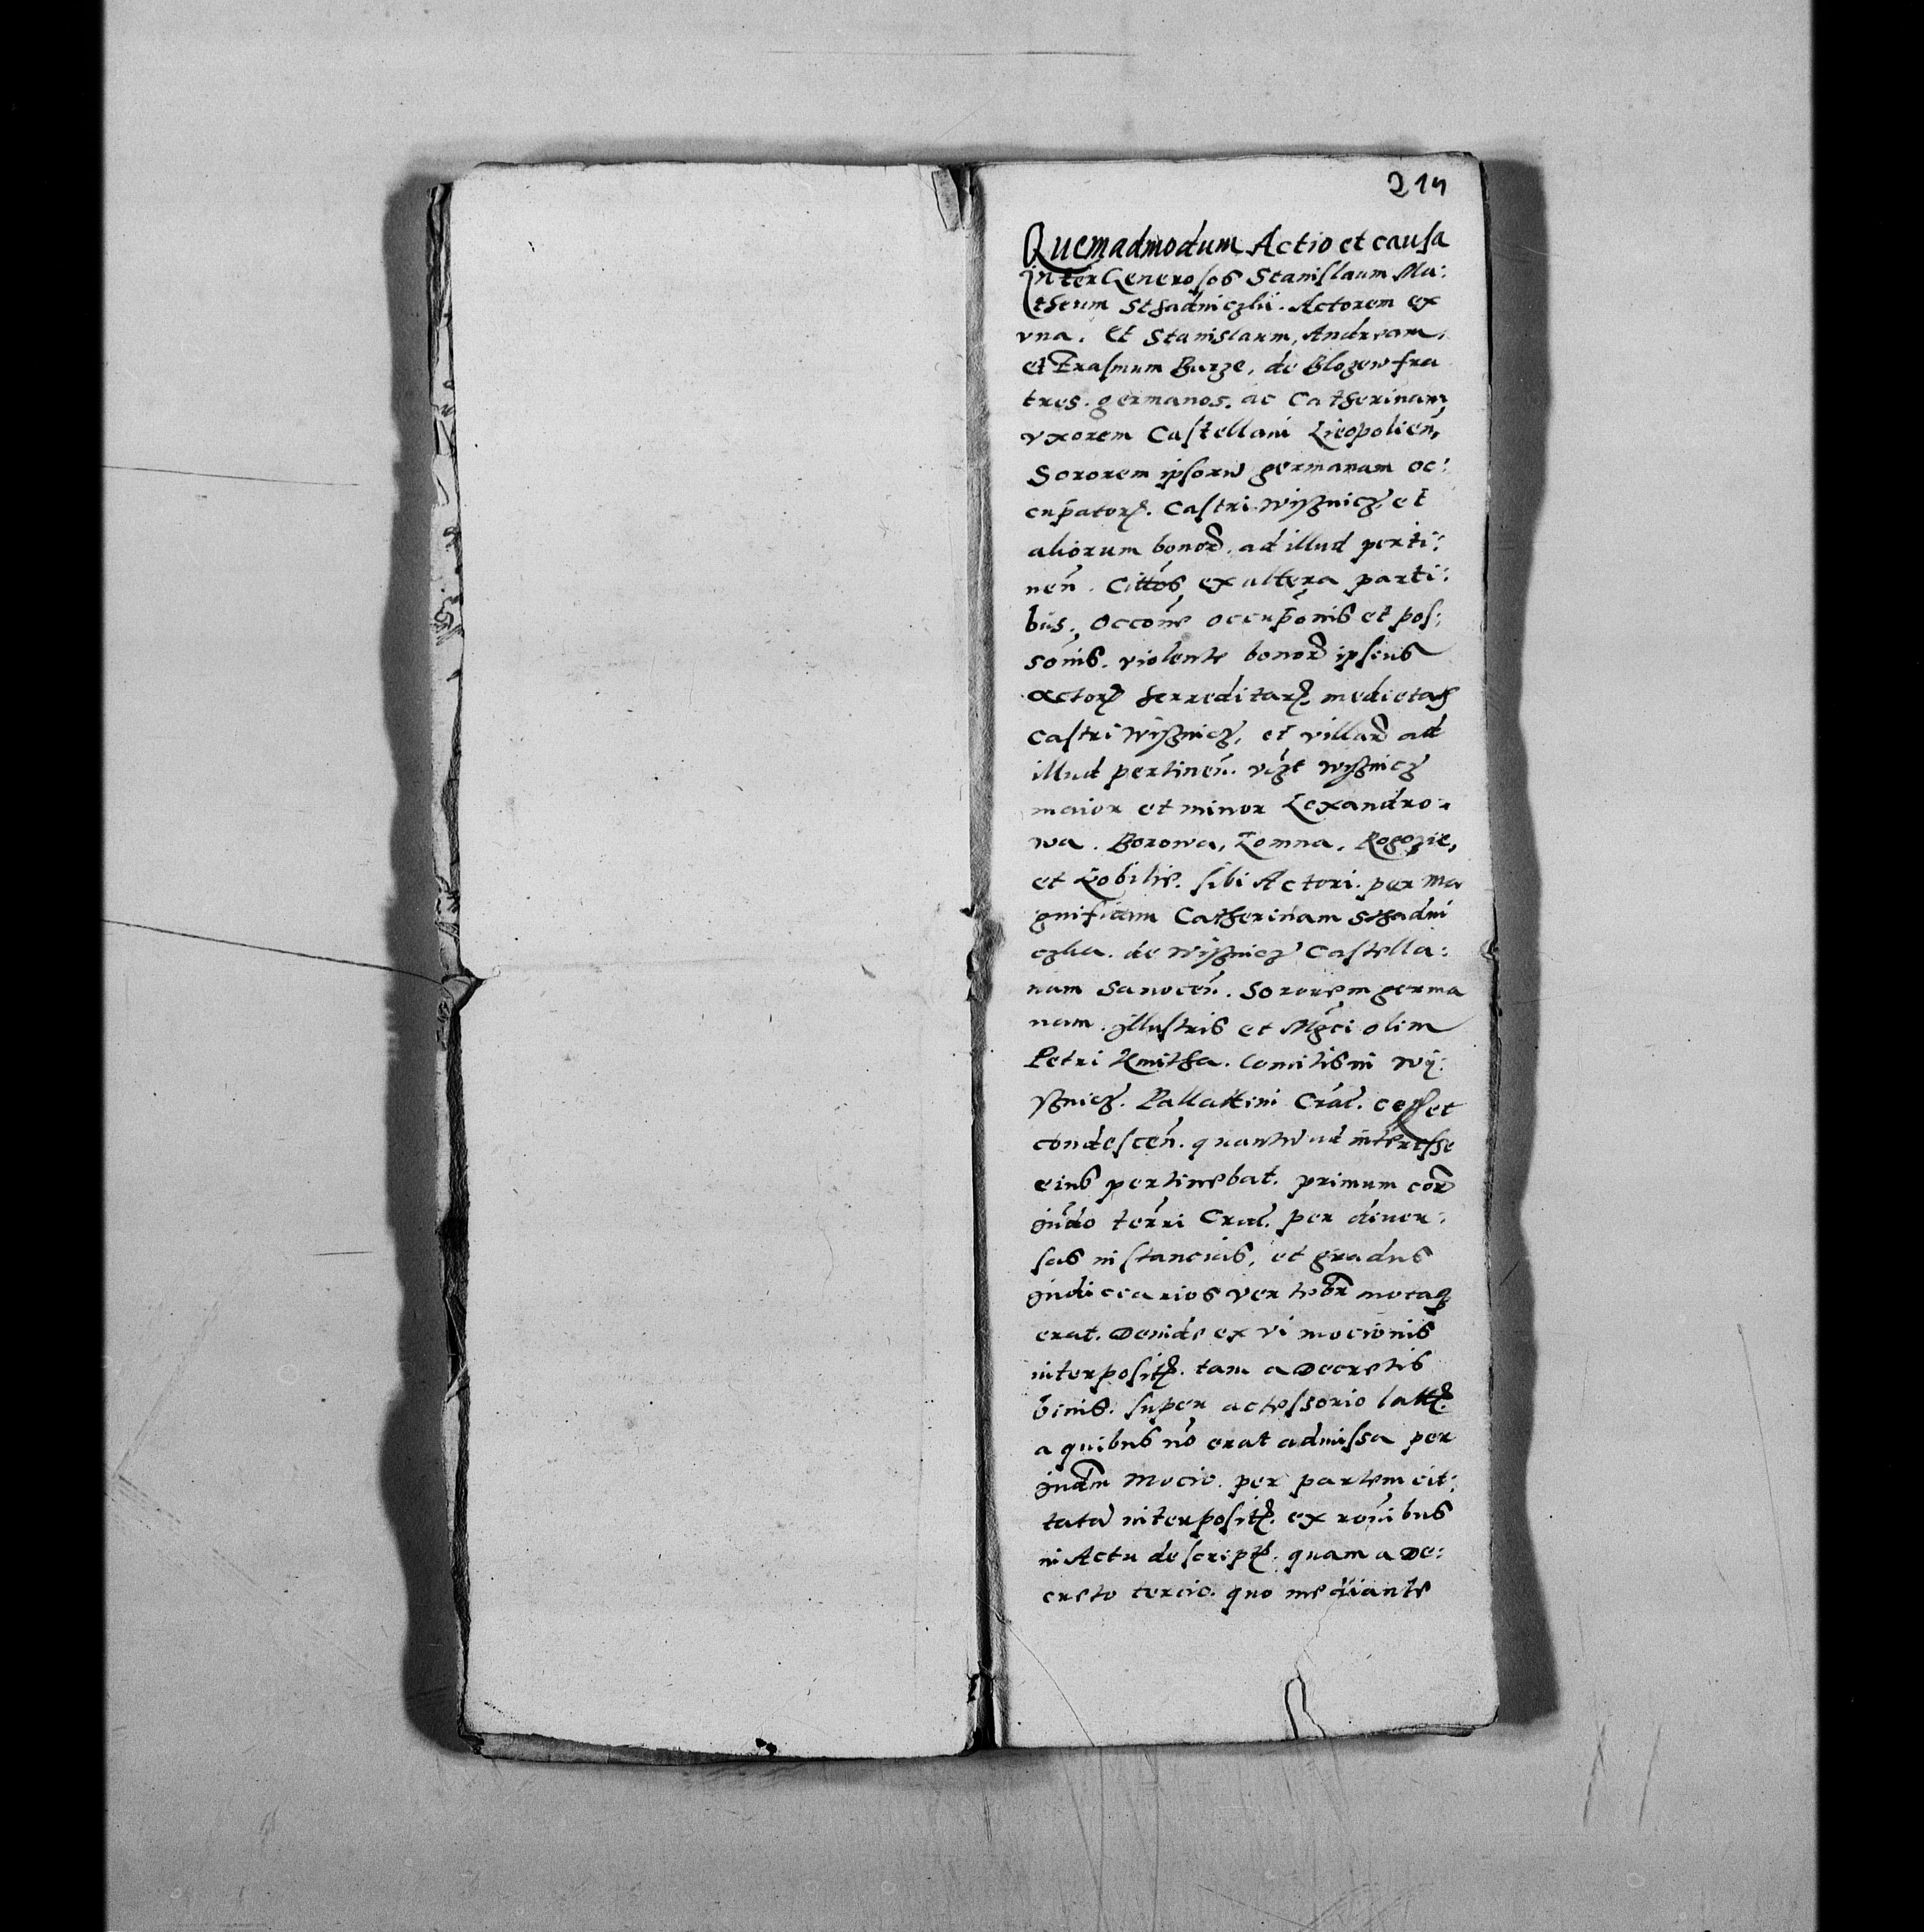 214
Quemadmodum Actio et causa
inter Generosos Stanislaum Ma:
theum Sthadniczki. Actorem ex
vna. Et Stanislaum, Andream,
et Erasmum Barze, de Blozew fra
tres. germanos. ac Catherinam
vxorem Castellani Lieopolien̄,
Sororem ipsorū germanam oc:
cupatorꝫ. Castri Wißnicz, et
aliorum bonorꝫ. ad illud perti:
nen̄. Cittōs ex altera parti:
bus. Occōne occupōnis et pos:
sōnis. violente bonorꝫ ipsius
actorꝫ herreditarꝫ. medietatꝫ
Castri Wißnicz, et villarꝫ ad
illud pertinen̄. vizt Wißnicz
maior et minor Lexandro:
wa. Borowa, Lomna. Rogozie,
et Kobilie. sibi Actori. per Ma
gnificam Catherinam Sthadni
czka. de Wißnicz Castella:
nam Sanocen̄. Sororem germa
nam. illustris et Mgci olim
Petri Kmitha. Comitis in Wi:
ßnicz. Pallattini Crac. cess et
condescen̄. quantū ad interesse
eius pertinebat. primum corꝫ
iudo terri Crac. per diver:
sas instancias, et gradus
iudiciarios vertebr̄ motaqꝫ
erat. Deinde ex vi mocionis
interpositꝫ. tam a Decretis
binis. super actessorio lattꝫ.
a quibus nō erat admissa per
iudm mocio. per partem cit:
tatā interpositꝫ. ex ronibus
in Actu descriptꝫ. quam a De:
creto tercio. quo mediante